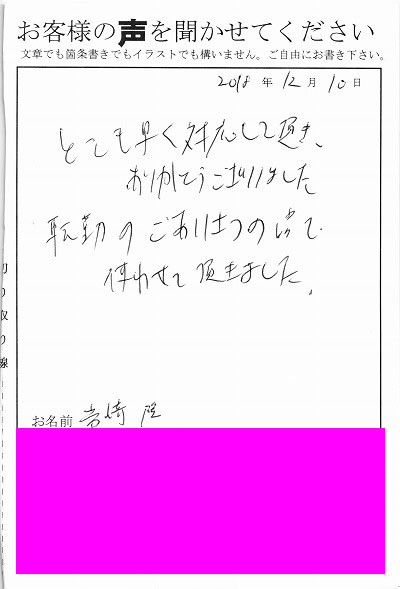 お客様の声を聞かせてください
文章でも箇条書きでもイラストでも構いません。ご自由にお書き下さい。
2018 年 12 月 10 日
とても早く対応して頂き、
ありがとうございました
転勤のごあいさつの品で
使わせて頂きました。
切り取り線
お名前